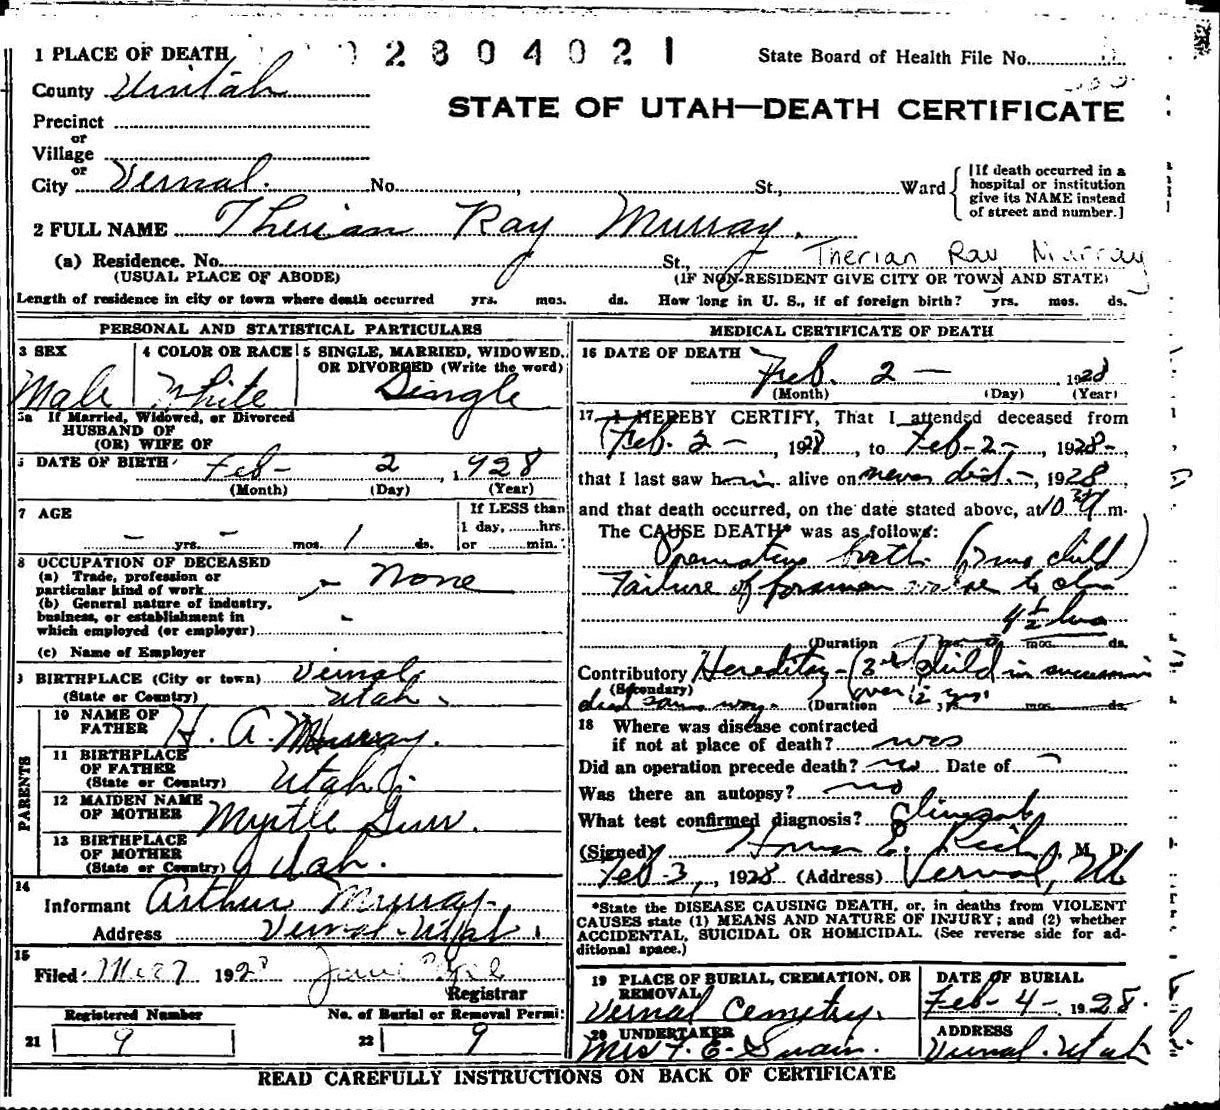 1 PLACE OF DEATH 02804021 State Board of Health File No.
County Uintah
STATE OF UTAH—DEATH CERTIFICATE
Precinct
or
Village
or
City Vernal. No. , St., Ward
[If death occurred in a hospital or institution give its NAME instead of street and number.]
2 FULL NAME Therian Ray Murray.
(a) Residence. No. St., Therian Ray Murray
(USUAL PLACE OF ABODE) (IF NON-RESIDENT GIVE CITY OR TOWN AND STATE)
Length of residence in city or town where death occurred yrs. mos. ds. How long in U. S., if of foreign birth? yrs. mos. ds.
PERSONAL AND STATISTICAL PARTICULARS
3 SEX 4 COLOR OR RACE 5 SINGLE, MARRIED, WIDOWED, OR DIVORCED (Write the word)
Male White Single
5a If Married, Widowed, or Divorced
HUSBAND OF
(OR) WIFE OF
DATE OF BIRTH Feb- 2, 1928
(Month) (Day) (Year)
7 AGE If LESS than
1 day, hrs.
- yrs. - mos. 1 ds. or min.
8 OCCUPATION OF DECEASED
(a) Trade, profession or
particular kind of work - None
(b) General nature of industry,
business, or establishment in
which employed (or employer) -
(c) Name of Employer
9 BIRTHPLACE (City or town) Vernal
(State or Country) Utah.
PARENTS
10 NAME OF FATHER H. A. Murray.
11 BIRTHPLACE OF FATHER
(State or Country) Utah
12 MAIDEN NAME OF MOTHER Myrtle
13 BIRTHPLACE OF MOTHER
(State or Country) Utah.
14
Informant Arthur Murray.
Address Vernal-Utah.
15
Filed 192
Registrar
Registered Number No. of Burial or Removal Permit
21 9 22 9
MEDICAL CERTIFICATE OF DEATH
16 DATE OF DEATH
Feb. 2 - , 1928
(Month) (Day) (Year)
17 I HEREBY CERTIFY, That I attended deceased from
Feb. 2 - , 1928, to Feb-2-, 1928-
that I last saw him alive on never did.-, 1928,
and that death occurred, on the date stated above, at 10 m.
The CAUSE DEATH* was as follows:
birth child)
Failure of foramen to
4½ hrs
(Duration mos. ds.
Contributory Heredity-(3rd child in succession
(Secondary)
died same way. (Duration over 12 yrs. mos. ds.
18 Where was disease contracted
if not at place of death?
Did an operation precede death? no Date of
Was there an autopsy? no
What test confirmed diagnosis?
(Signed) E. M. D.
Feb-3, , 1928 (Address) Vernal, Ut
*State the DISEASE CAUSING DEATH, or, in deaths from VIOLENT
CAUSES state (1) MEANS AND NATURE OF INJURY; and (2) whether
ACCIDENTAL, SUICIDAL OR HOMICIDAL. (See reverse side for ad-
ditional space.)
19 PLACE OF BURIAL, CREMATION, OR REMOVAL DATE OF BURIAL
Vernal Cemetry. Feb-4-, 1928.
20 UNDERTAKER ADDRESS
Mrs F. E. Swain. Vernal-Utah
READ CAREFULLY INSTRUCTIONS ON BACK OF CERTIFICATE